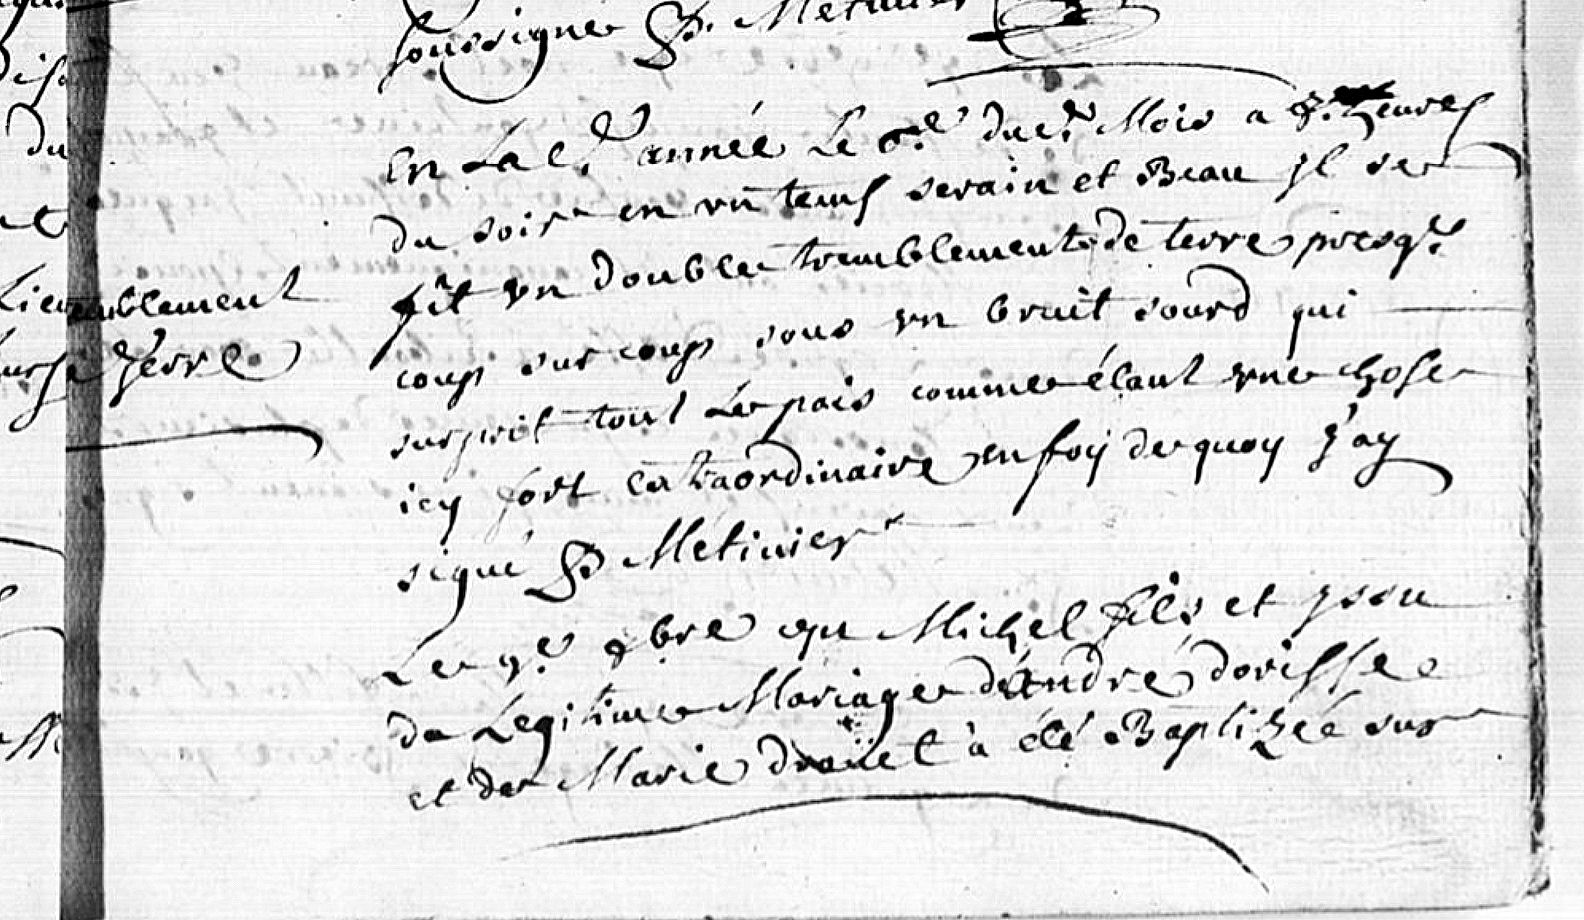 soussigné P. Metivier
En La d.e année Le 6.e du d.t Mois a 8. heures
du soir en un tems serain et Beau jl se
fit un double tremblement de terre presq.e
coup sur coup sous un bruit sourd qui
surprit tout Le pais comme étant une chose
icy fort extraordinaire en foy de quoy j'ay
signé P. Metivier
Le 9.e 8bre Michel fils et yssu
de Legitime Mariage d'andré dorisse
et de Marie droüet à été Baptizée sur
tremblement
de Terre
du